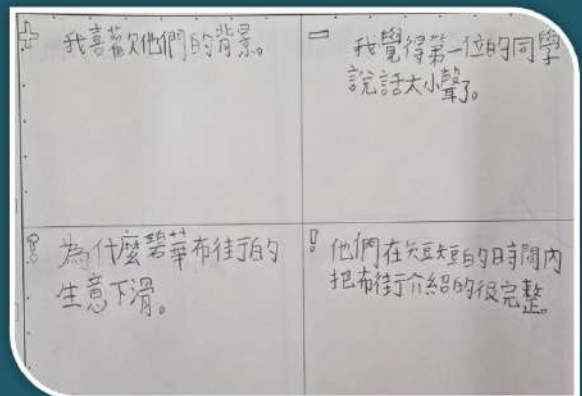 + 我喜歡他們的背景。
- 我覺得第一位的同學
說話太小聲了。
? 為什麼碧華布街的
生意下滑。
! 他們在短短的時間內
把布街介紹的很完整。